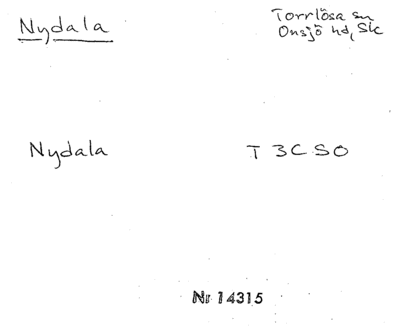 Nydala
Torrlösa sn
Onsjö hd, Sk
Nydala
T 3C SO
Nr 14315